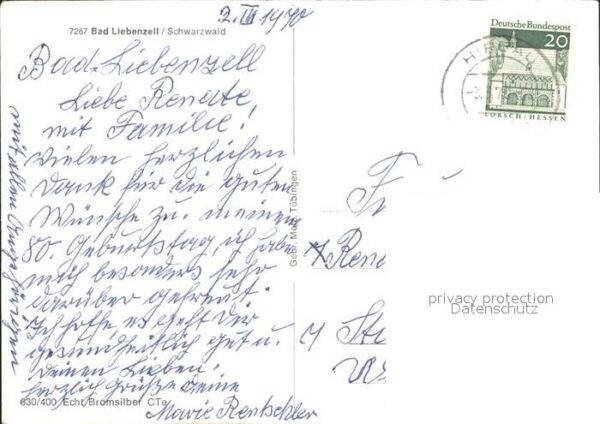 2. III 1970
7267 Bad Liebenzell / Schwarzwald
Bad-Liebenzell
Liebe Renate,
mit Familie!
Vielen herzlichen
Dank für die guten
Wünsche zu meinem
80. Geburtstag, ich habe
mich besonders sehr
darüber gefreut.
Ich hoffe, es geht Dir
gesundheitlich gut u.
Deinen Lieben.
Herzlich Grüße Deine
Marie Rentschler
mit allen Angehörigen
630/400 Echt Bromsilber CTa
Gebr. Metz, Tübingen
Deutsche Bundespost
20
LORSCH / HESSEN
HIRSAU
F
Rena
St
privacy protection
Datenschutz